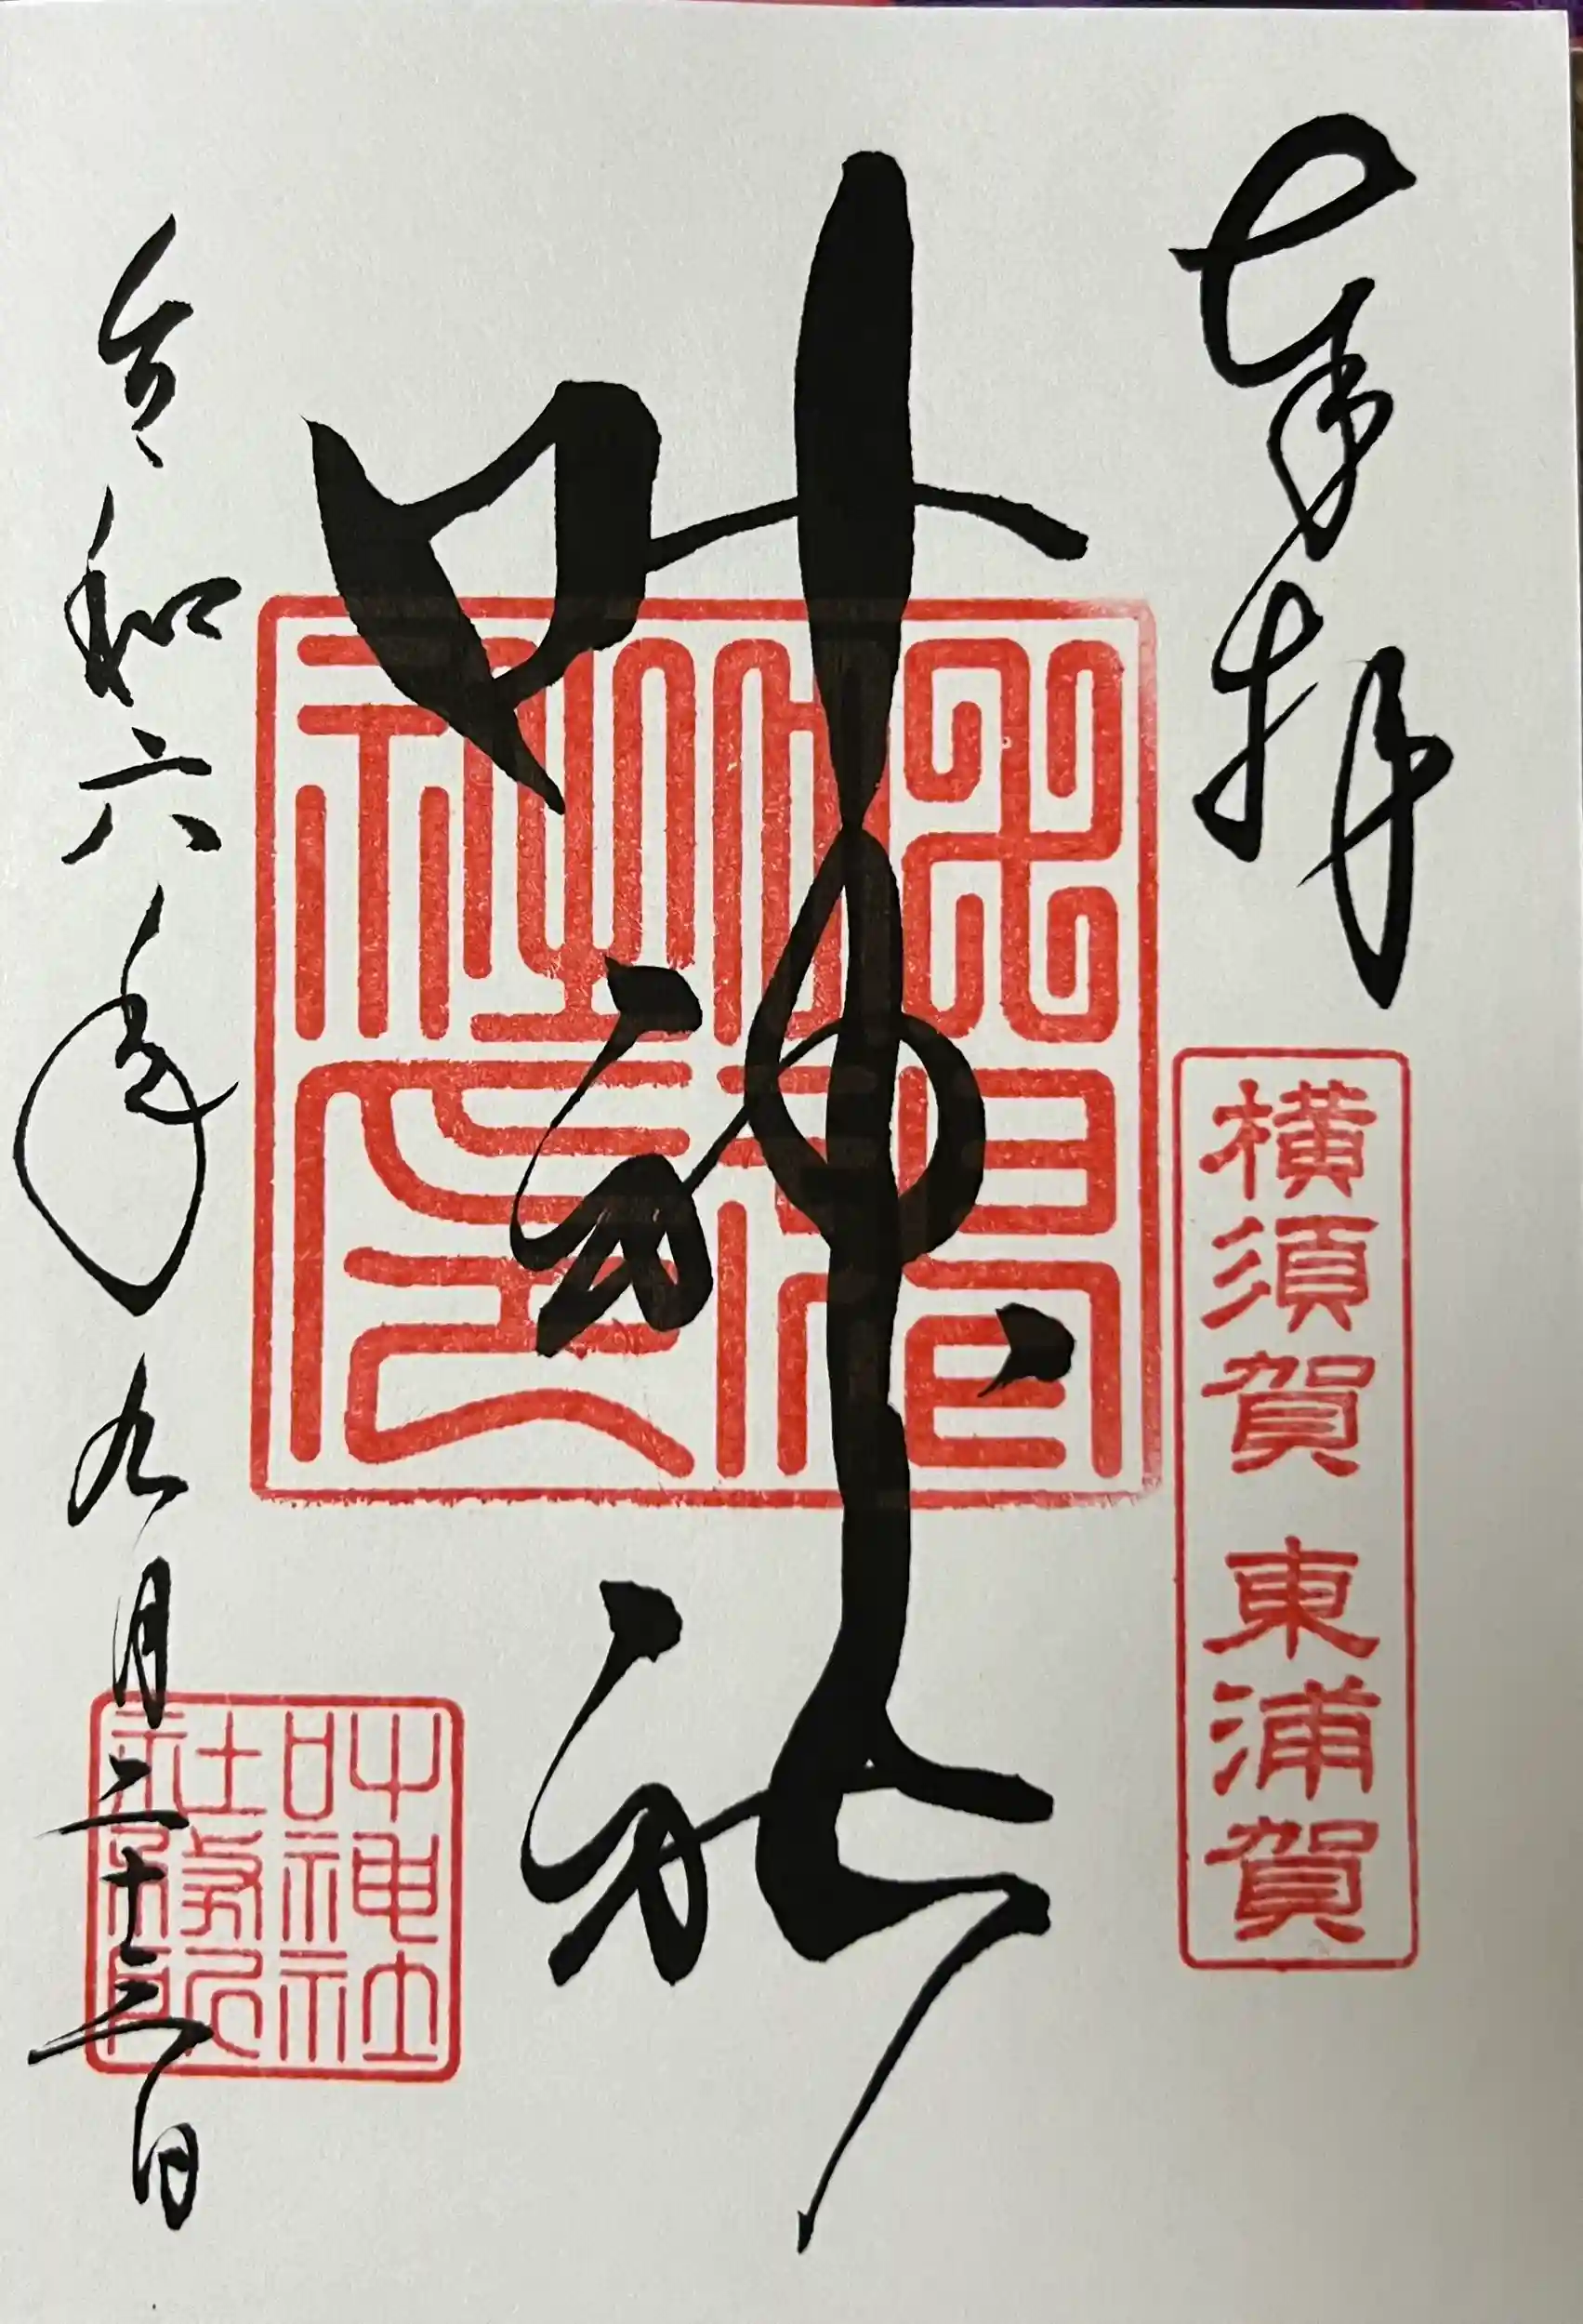 奉拝
横須賀 東浦賀
叶神社
叶神社
社務所印
令和六年九月二十三日